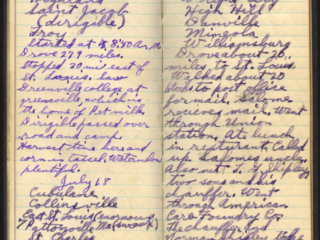 Saint Jacob
(dirigible)
Troy
Started at 8:40 A.M.
Drove 279 miles.
Stopped 20 mi. east of
St. Louis. Saw
Greenville college at
Greenville, which is
the home of Pet milk.
Dirigible passed over
road and camp.
Harvest time here and
corn in tassel. Watermelon
plentiful.
July 68
Collinsville
East St. Louis (enormous
Pattonville Mo.
St. Charles
High Hill
Danville
Mineola
Williamsburg
Drove about 20
miles to St. Louis
Walked about 20
blocks to post office
for mail. Salome
received mail. Went
through Union
station. At lunch
in resturant. Called
up Salomes uncle.
Also met
two sons and his
Went
through American
Car & Foundry Co.